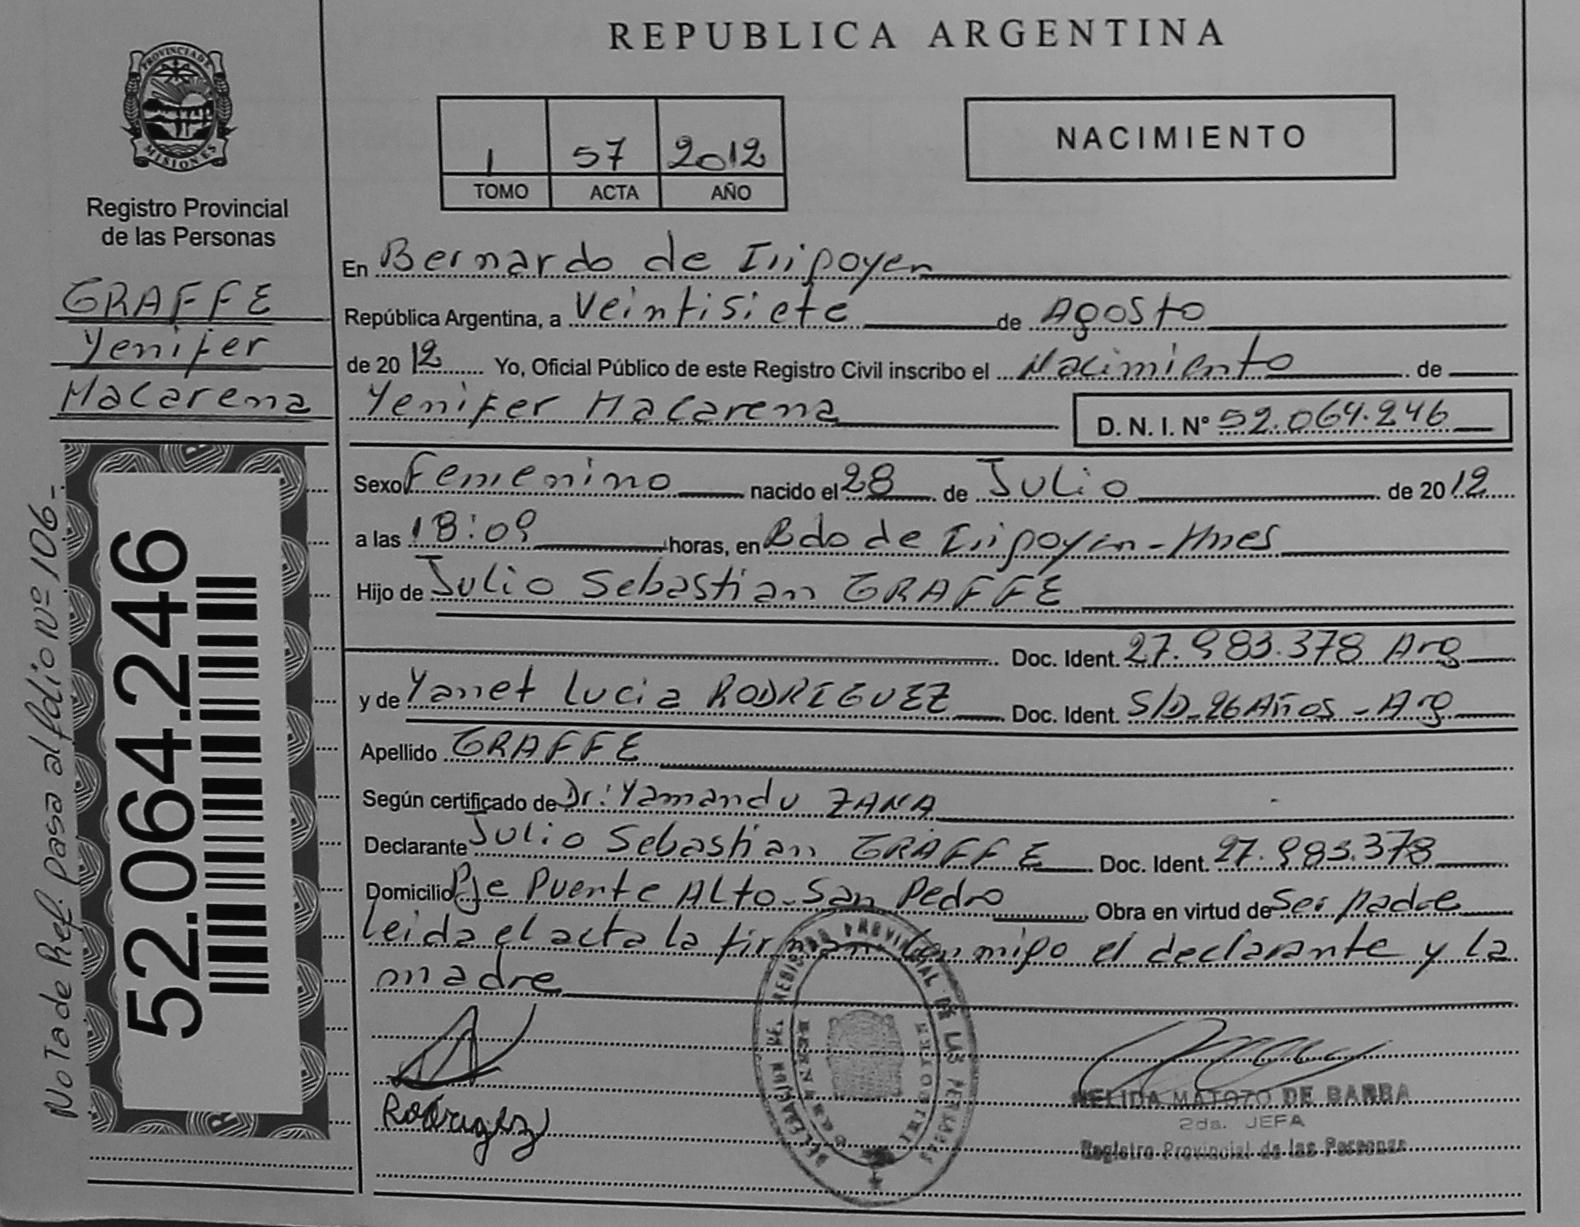 REPUBLICA ARGENTINA
PROVINCIA DE
MISIONES
Registro Provincial
de las Personas
GRAFFE
Yenifer
Macarena
1 57 2012
TOMO ACTA AÑO
NACIMIENTO
En Bernardo de Irigoyen
República Argentina, a Veintisiete de Agosto
de 2012 Yo, Oficial Público de este Registro Civil inscribo el Nacimiento de
Yenifer Macarena D. N. I. Nº 52.064.246
Sexo Femenino nacido el 28 de Julio de 2012
a las 18:09 horas, en Bdo de Irigoyen - Mnes
Hijo de Julio Sebastian GRAFFE
Doc. Ident. 27.983.378 Arg
y de Yanet Lucia RODRIGUEZ Doc. Ident. S/D-26 Años - Arg
Apellido GRAFFE
Según certificado de Dr: Yamandu ZANA
Declarante Julio Sebastian GRAFFE Doc. Ident. 27.983.378
Domicilio Pje Puente Alto - San Pedro Obra en virtud de Ser padre
leida el acta la firman conmigo el declarante y la
madre
Rodriguez
NELIDA MATOZO DE BARRA
2da. JEFA
Registro Provincial de las Personas
DELEGACION DEL REGISTRO PROVINCIAL DE LAS PERSONAS
52.064.246
Nota de Ref. pasa al folio Nº 106-